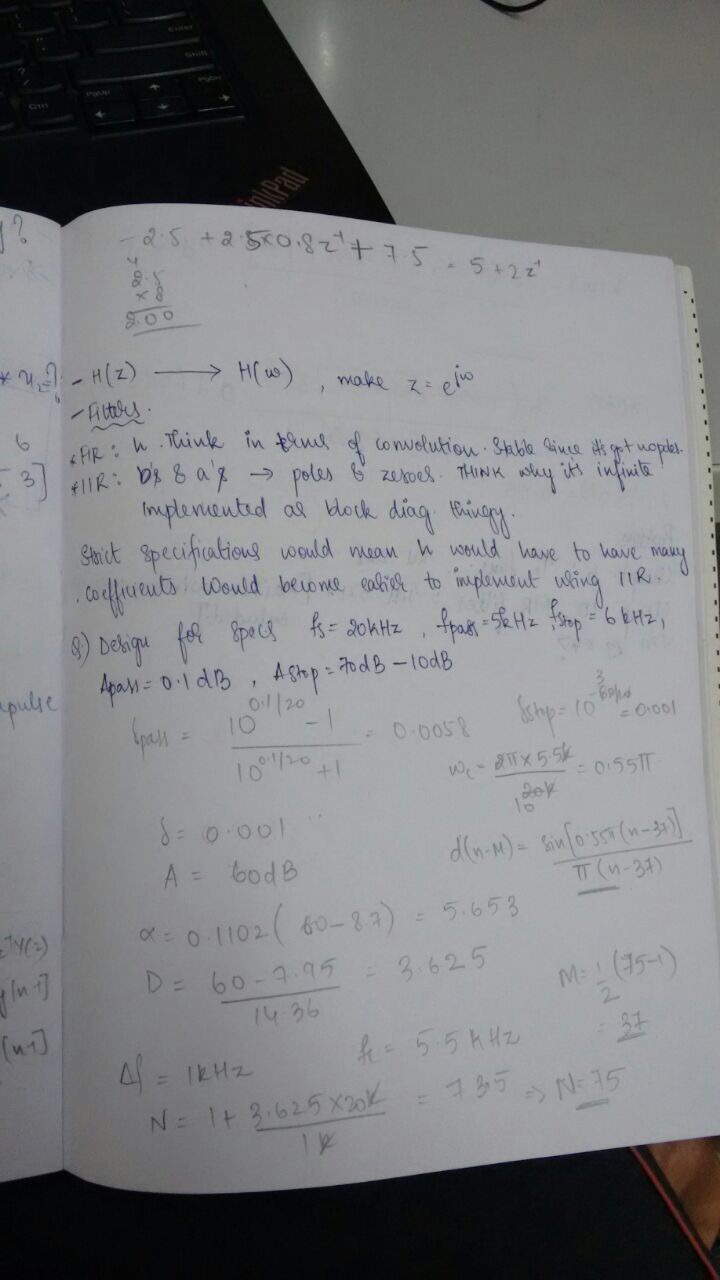 Enter
Shift
PgUp
PgDn
Ctrl
ThinkPad
y?
- 2.5 + 2.5×0.8z⁻¹ + 7.5 = 5 + 2z⁻¹
4
2.5
× 8
2.00
- H(z) → H(ω) , make z = e^jω
- Filters.
* FIR : h. Think in terms of convolution. Stable since its got no poles.
6
* IIR : b's & a's → poles & zeroes. THINK why its infinite
3]
Implemented as block diag. thingy.
Strict specifications would mean h would have to have many
coefficients. Would become easier to implement using IIR.
Q) Design for specs fs = 20kHz , fpass = 5kHz, fstop = 6 kHz,
Apass = 0.1 dB , Astop = 70dB - 10dB
mpulse
δpass = (10^0.1/20 - 1) / (10^0.1/20 + 1) = 0.0058
δstop = 10^-3 = 0.001
ωc = 2π × 5.5k / 20k = 0.55π
10
δ = 0.001
A = 60dB
d(n-M) = sin[0.55π(n-37)] / π(n-37)
α = 0.1102( 60 - 8.7) = 5.653
D = 60 - 7.95 / 14.36 = 3.625
M = 1/2 (75-1)
= 37
z⁻¹Y(z)
y[n-1]
[n-1]
Δf = 1kHz
fc = 5.5 kHz
N = 1 + 3.625 × 20k / 1k = 73.5 => N = 75